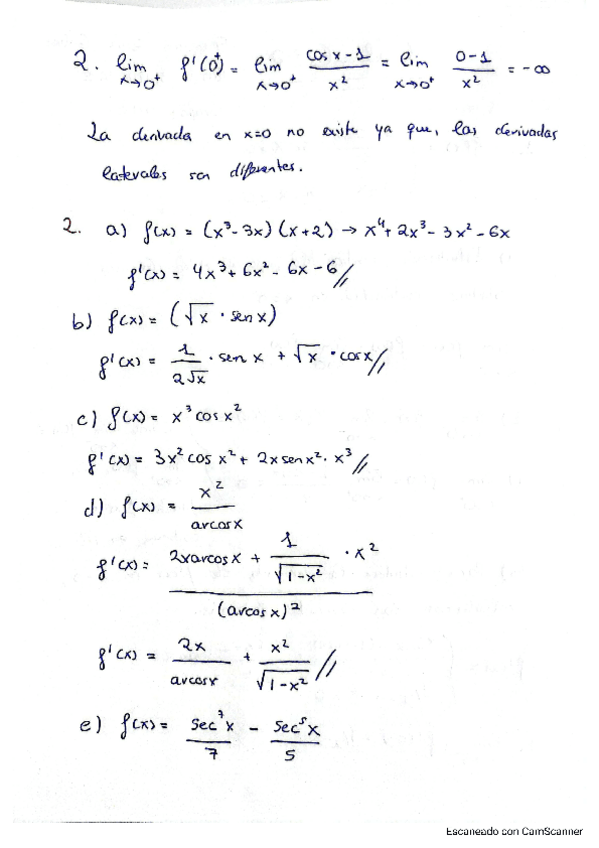 2. lim x→0⁺ f'(0⁺) = lim x→0⁺ (cos x - 1)/x² = lim x→0⁺ (0-1)/x² = -∞
La derivada en x=0 no existe ya que, las derivadas
laterales son diferentes.
2. a) f(x) = (x³-3x)(x+2) → x⁴+2x³-3x²-6x
f'(x) = 4x³+6x²-6x-6//
b) f(x) = (√x · sen x)
f'(x) = 1/(2√x) · sen x + √x · cos x//
c) f(x) = x³ cos x²
f'(x) = 3x² cos x² + 2x sen x² · x³//
d) f(x) = x²/arcosx
f'(x) = (2x arcos x + 1/√(1-x²) · x²)/(arcos x)²
f'(x) = 2x/arcosx + x²/√(1-x²)//
e) f(x) = sec⁷x/7 - sec⁵x/5
Escaneado con CamScanner